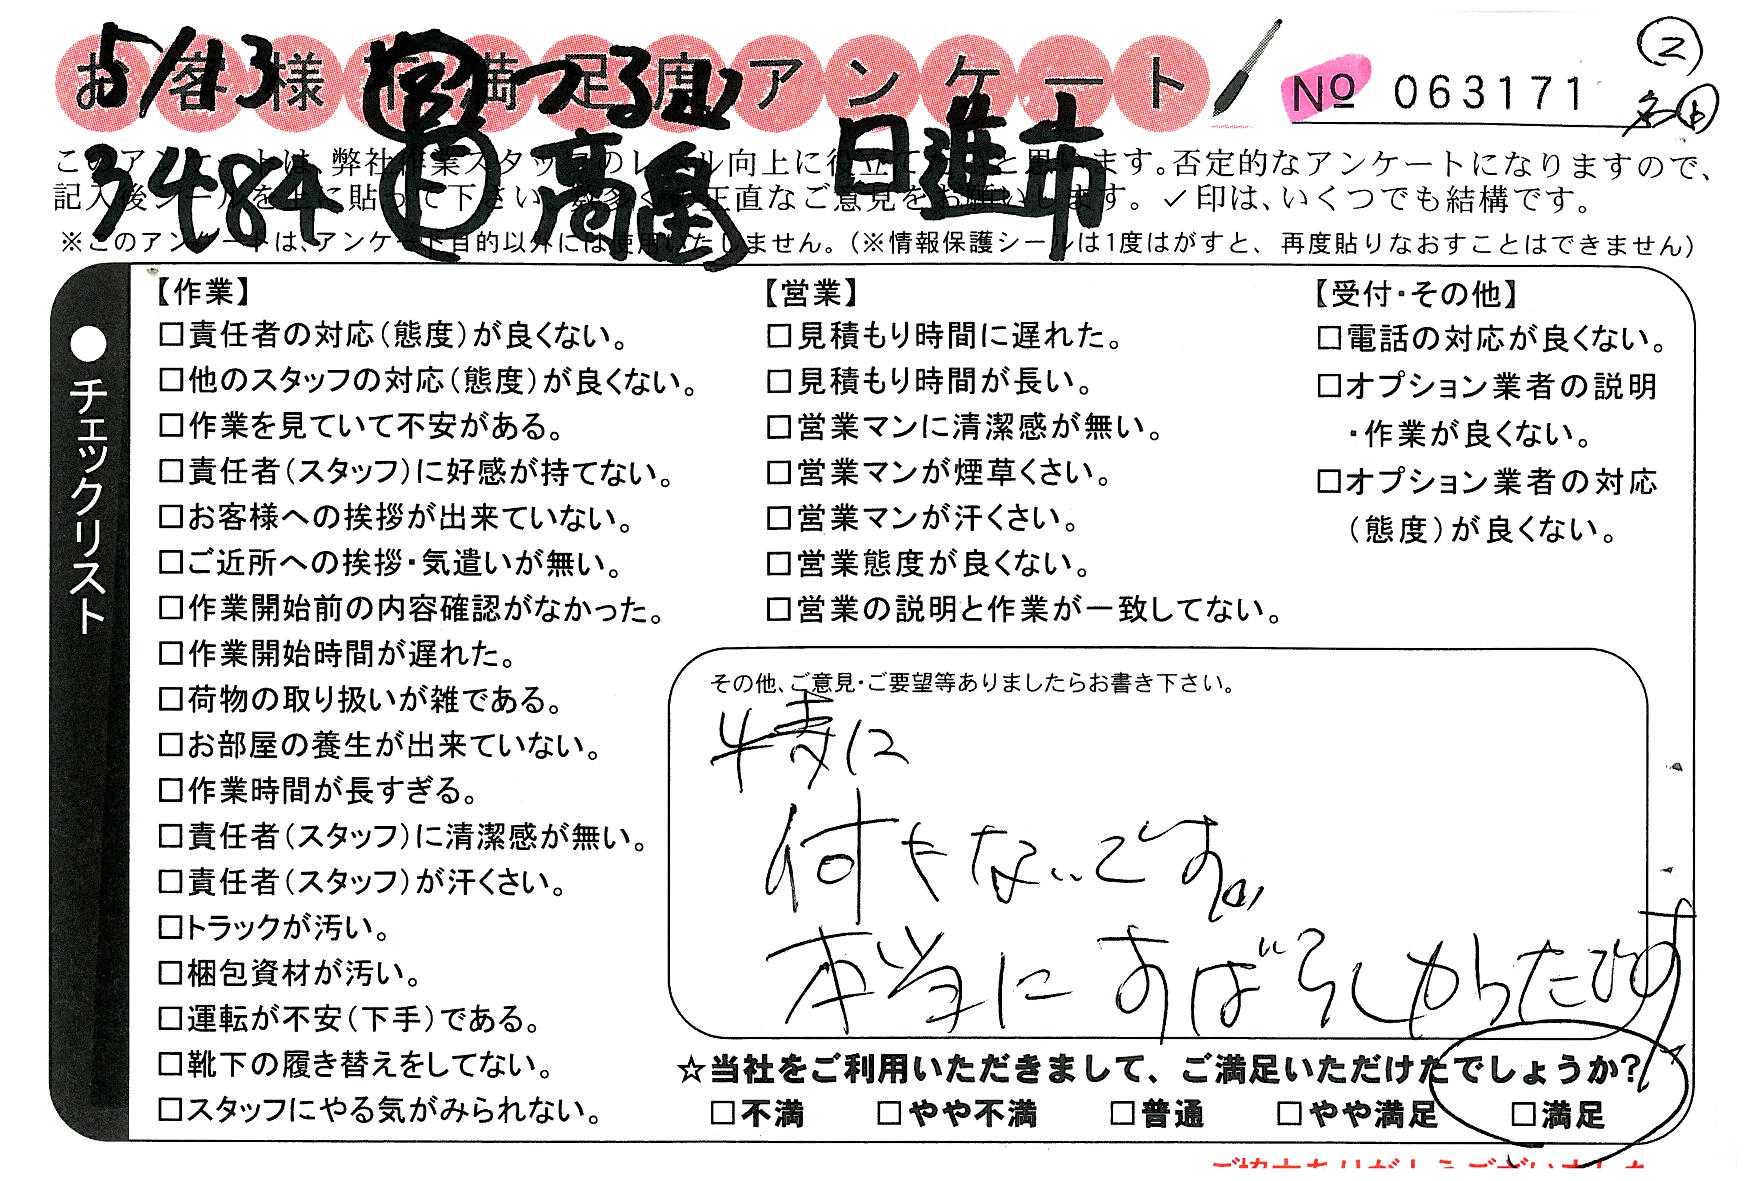 お客様不満足度アンケート
No 063171
②
名古
5/13 営 つる山
3484 上 高畠 日進市
このアンケートは、弊社作業スタッフのレベル向上に役立てたいと思います。否定的なアンケートになりますので、
記入後シールを上に貼って下さい。数多くの正直なご意見をお願いします。✓印は、いくつでも結構です。
※このアンケートは、アンケート目的以外には使用いたしません。(※情報保護シールは1度はがすと、再度貼りなおすことはできません)
●チェックリスト
【作業】
□責任者の対応(態度)が良くない。
□他のスタッフの対応(態度)が良くない。
□作業を見ていて不安がある。
□責任者(スタッフ)に好感が持てない。
□お客様への挨拶が出来ていない。
□ご近所への挨拶・気遣いが無い。
□作業開始前の内容確認がなかった。
□作業開始時間が遅れた。
□荷物の取り扱いが雑である。
□お部屋の養生が出来ていない。
□作業時間が長すぎる。
□責任者(スタッフ)に清潔感が無い。
□責任者(スタッフ)が汗くさい。
□トラックが汚い。
□梱包資材が汚い。
□運転が不安(下手)である。
□靴下の履き替えをしてない。
□スタッフにやる気がみられない。
【営業】
□見積もり時間に遅れた。
□見積もり時間が長い。
□営業マンに清潔感が無い。
□営業マンが煙草くさい。
□営業マンが汗くさい。
□営業態度が良くない。
□営業の説明と作業が一致してない。
【受付・その他】
□電話の対応が良くない。
□オプション業者の説明
・作業が良くない。
□オプション業者の対応
(態度)が良くない。
その他、ご意見・ご要望等ありましたらお書き下さい。
特に
何もないです。
本当にすばらしかったです
☆当社をご利用いただきまして、ご満足いただけたでしょうか?
□不満 □やや不満 □普通 □やや満足 □満足
ご協力ありがとうございました